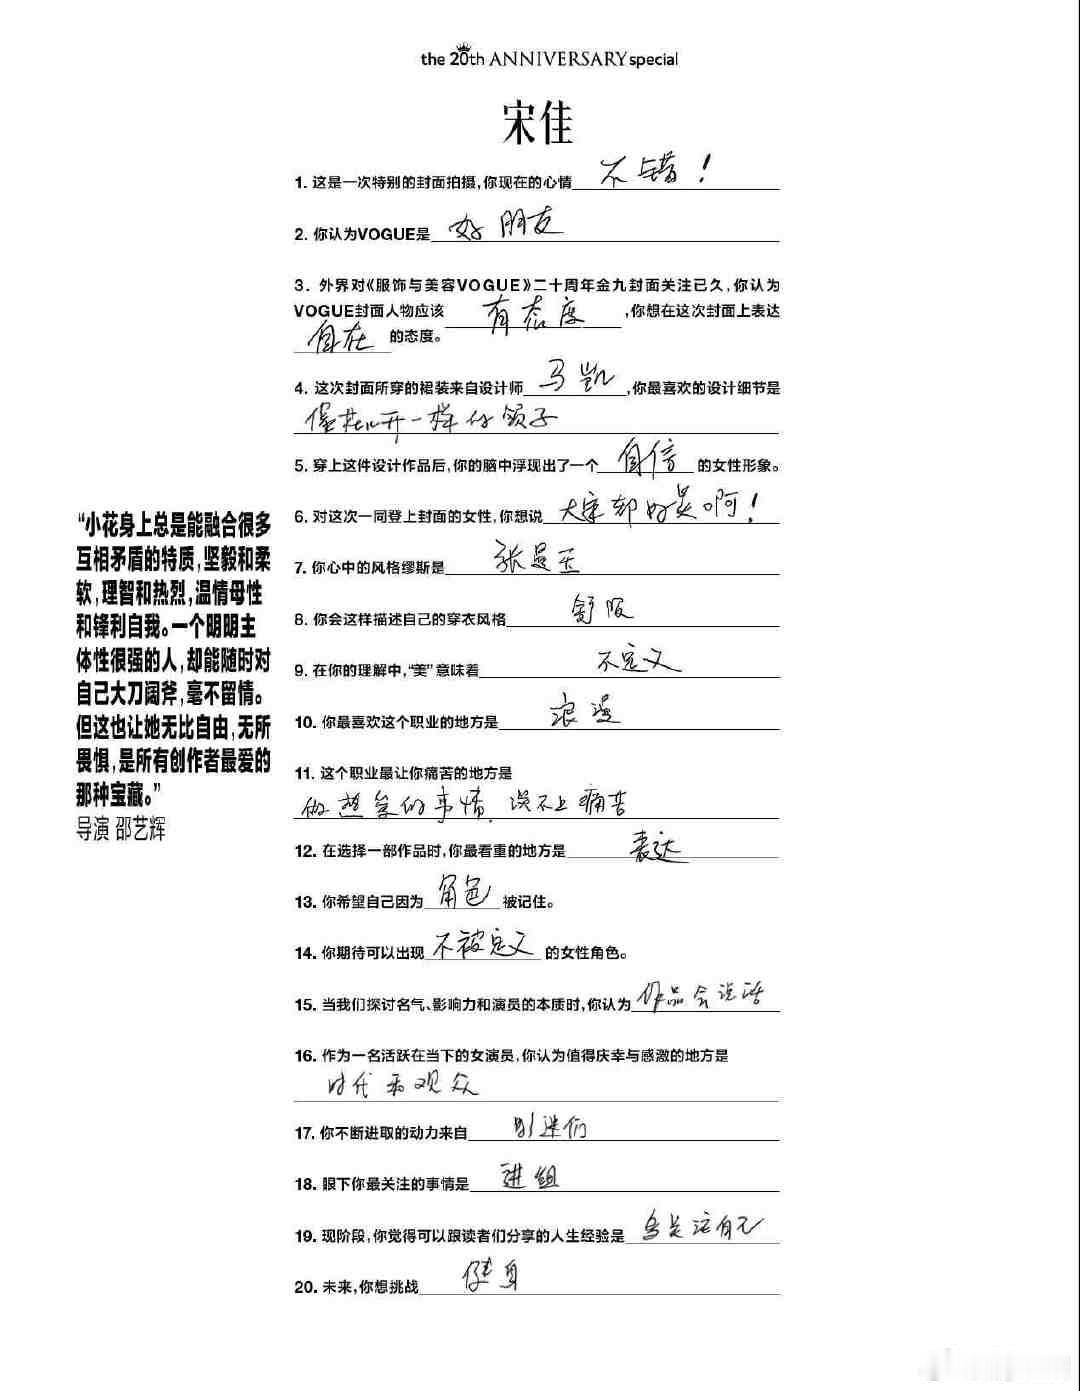 the 20th ANNIVERSARY special
宋佳
1. 这是一次特别的封面拍摄,你现在的心情 不错!
2. 你认为VOGUE是 好朋友
3. 外界对《服饰与美容VOGUE》二十周年金九封面关注已久,你认为
VOGUE封面人物应该 有态度 ,你想在这次封面上表达
自在 的态度。
4. 这次封面所穿的裙装来自设计师 马凯 ,你最喜欢的设计细节是
像花儿开一样的领子
5. 穿上这件设计作品后,你的脑中浮现出了一个 自信 的女性形象。
6. 对这次一同登上封面的女性,你想说 大家都好美啊!
7. 你心中的风格缪斯是 张曼玉
8. 你会这样描述自己的穿衣风格 舒服
9. 在你的理解中,“美”意味着 不定义
10. 你最喜欢这个职业的地方是 浪漫
11. 这个职业最让你痛苦的地方是
做想象的事情,谈不上痛苦
12. 在选择一部作品时,你最看重的地方是 表达
13. 你希望自己因为 角色 被记住。
14. 你期待可以出现 不被定义 的女性角色。
15. 当我们探讨名气、影响力和演员的本质时,你认为 作品会说话
16. 作为一名活跃在当下的女演员,你认为值得庆幸与感激的地方是
时代和观众
17. 你不断进取的动力来自
18. 眼下你最关注的事情是 进组
19. 现阶段,你觉得可以跟读者们分享的人生经验是
20. 未来,你想挑战 健身
“小花身上总是能融合很多
互相矛盾的特质,坚毅和柔
软,理智和热烈,温情母性
和锋利自我。一个明明主
体性很强的人,却能随时对
自己大刀阔斧,毫不留情。
但这也让她无比自由,无所
畏惧,是所有创作者最爱的
那种宝藏。”
导演 邵艺辉